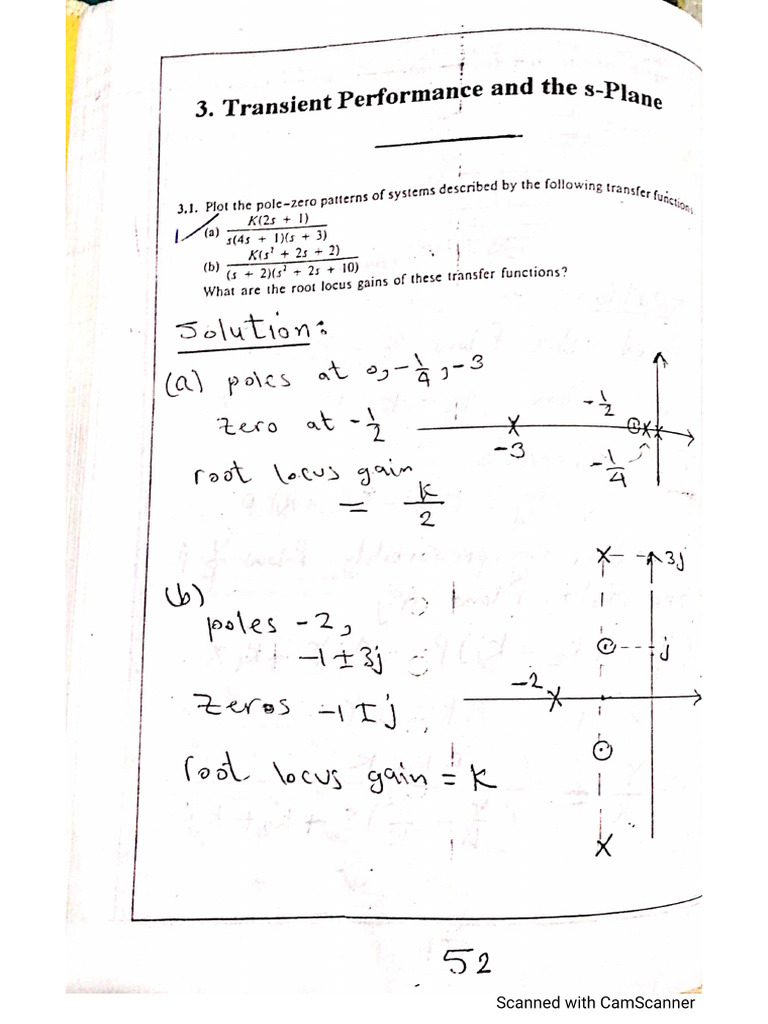 3. Transient Performance and the s-Plane
3.1. Plot the pole-zero patterns of systems described by the following transfer functions
1 (a) K(2s + 1) / s(4s + 1)(s + 3)
(b) K(s² + 2s + 2) / (s + 2)(s² + 2s + 10)
What are the root locus gains of these transfer functions?
Solution:
(a) poles at 0, -1/4, -3
zero at -1/2
root locus gain
= K/2
-1/2
-3
-1/4
(b)
poles -2,
-1 ± 3j
Zeros -1 ± j
root locus gain = K
3j
j
-2
52
Scanned with CamScanner